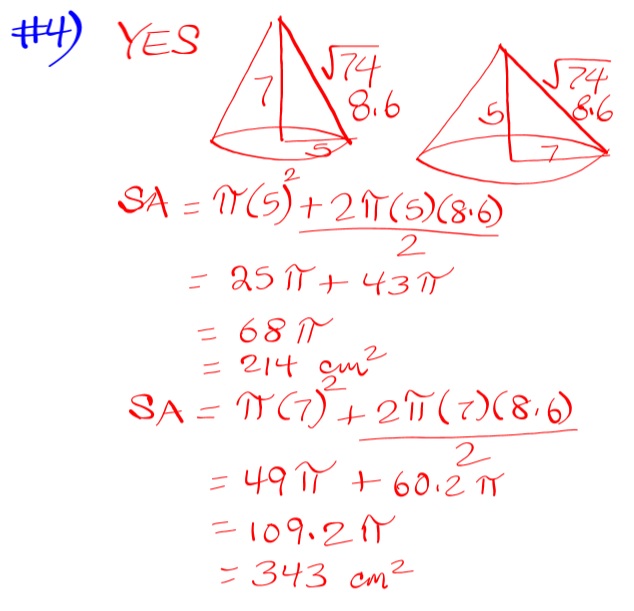 #4) YES
7 √74 8.6 5
5 √74 8.6 7
SA = π(5)² + 2π(5)(8.6)
2
= 25π + 43π
= 68π
= 214 cm²
SA = π(7)² + 2π(7)(8.6)
2
= 49π + 60.2π
= 109.2π
= 343 cm²